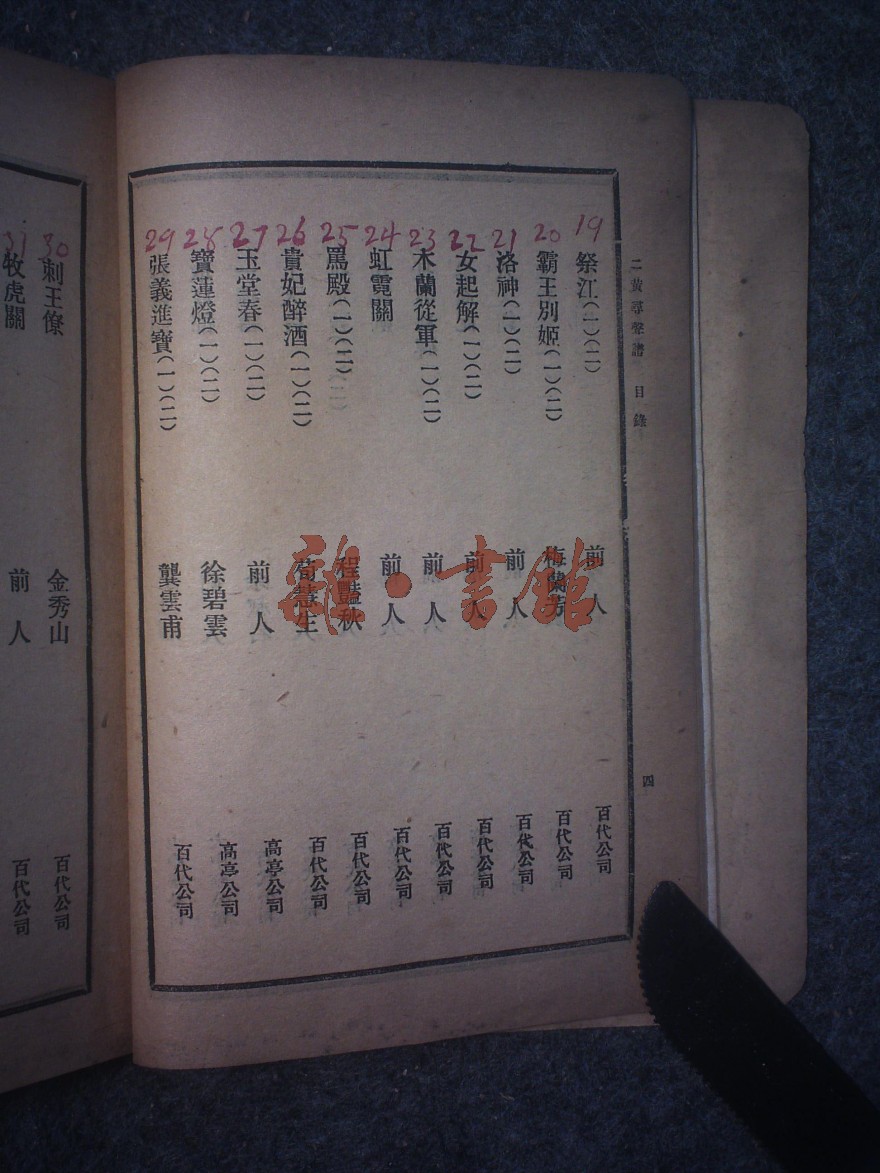 二黃尋聲譜 目錄 四
19 祭江(一)(二) 前人 百代公司
20 霸王別姬(一)(二) 梅蘭芳 百代公司
21 洛神(一)(二) 前人 百代公司
22 女起解(一)(二) 前人 百代公司
23 木蘭從軍(一)(二) 前人 百代公司
24 虹霓關 前人 百代公司
25 罵殿(一)(二) 程豔秋 百代公司
26 貴妃醉酒(一)(二) 荀慧生 百代公司
27 玉堂春(一)(二) 前人 高亭公司
28 寶蓮燈(一)(二) 徐碧雲 高亭公司
29 張義進寶(一)(二) 龔雲甫 百代公司
30 刺王僚 金秀山 百代公司
31 牧虎關 前人 百代公司
雜·書館